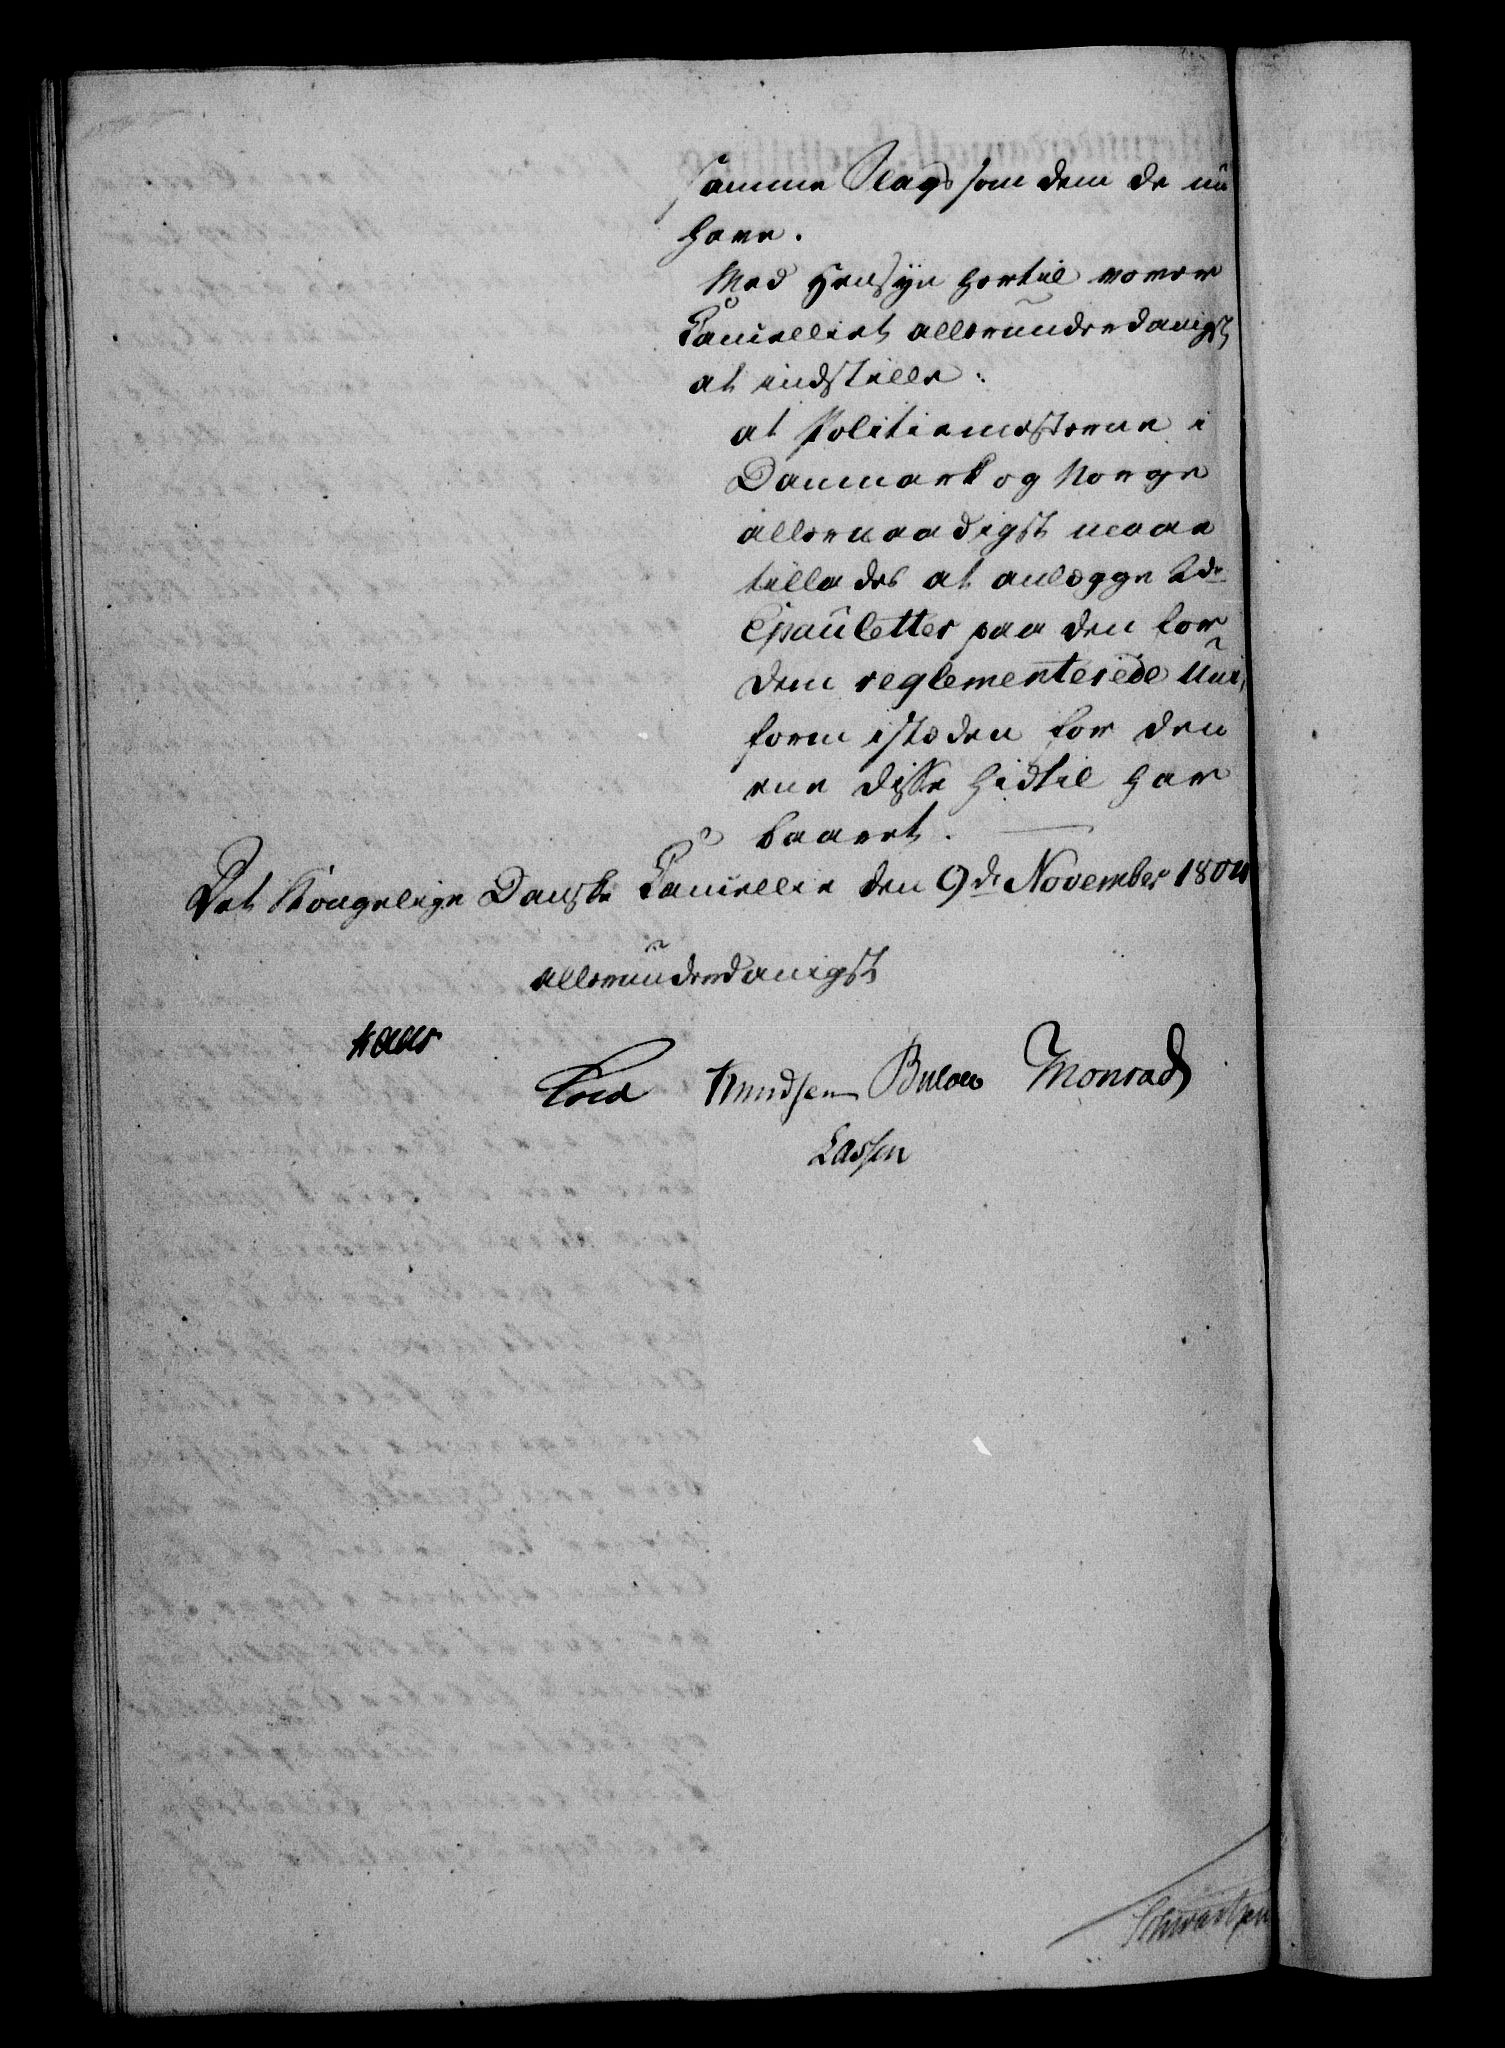 samme Slags som dem de nu
have.
Med Hensyn hertil vover
Cancelliet allerunderdanigst
at indstille:
at Politiemesterne i
Danmark og Norge
allernaadigst maae
tillades at anlægge 2de
Epauletter paa den for
dem reglementerede Uni-
form istæden for den
ene disse hidtil har
baaret.
Det Kongelige Danske Cancellie den 9de November 1804
allerunderdanigst
Kaas
Cold Knudsen Bülow Monrad
Lassen